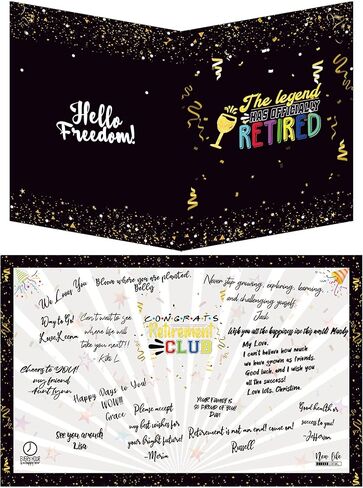 Hello
Freedom!
The legend
HAS OFFICIALLY
RETIRED
We Love You
Bloom where you are planted.
Betty
Never stop growing, exploring, learning,
and challenging yourself
Jack
Way to Go!
KaseKeena
Can't wait to see
where life will
take you next!!
Kike L
C·O·N·G·R·A·T·S
Retirement
CLUB
Wish you all the happiness in this world Mandy
My Love,
I can't believe how much
we have grown as friends.
Good luck, and I wish you
all the success!
Love lots, Christina
Cheers to YOU!
my friend
Aunt Lynn
Happy Days to You!
WOW!
Grace
See you around
Lisa
Please accept
my best wishes for
your bright future!
-Maria
YOUR FAMILY IS
SO PROUD OF YOUR
DAD
Retirement is not an end! come on!
Russell
Good health or
success to you!
-Jefferson
EVERY HOUR
New Life